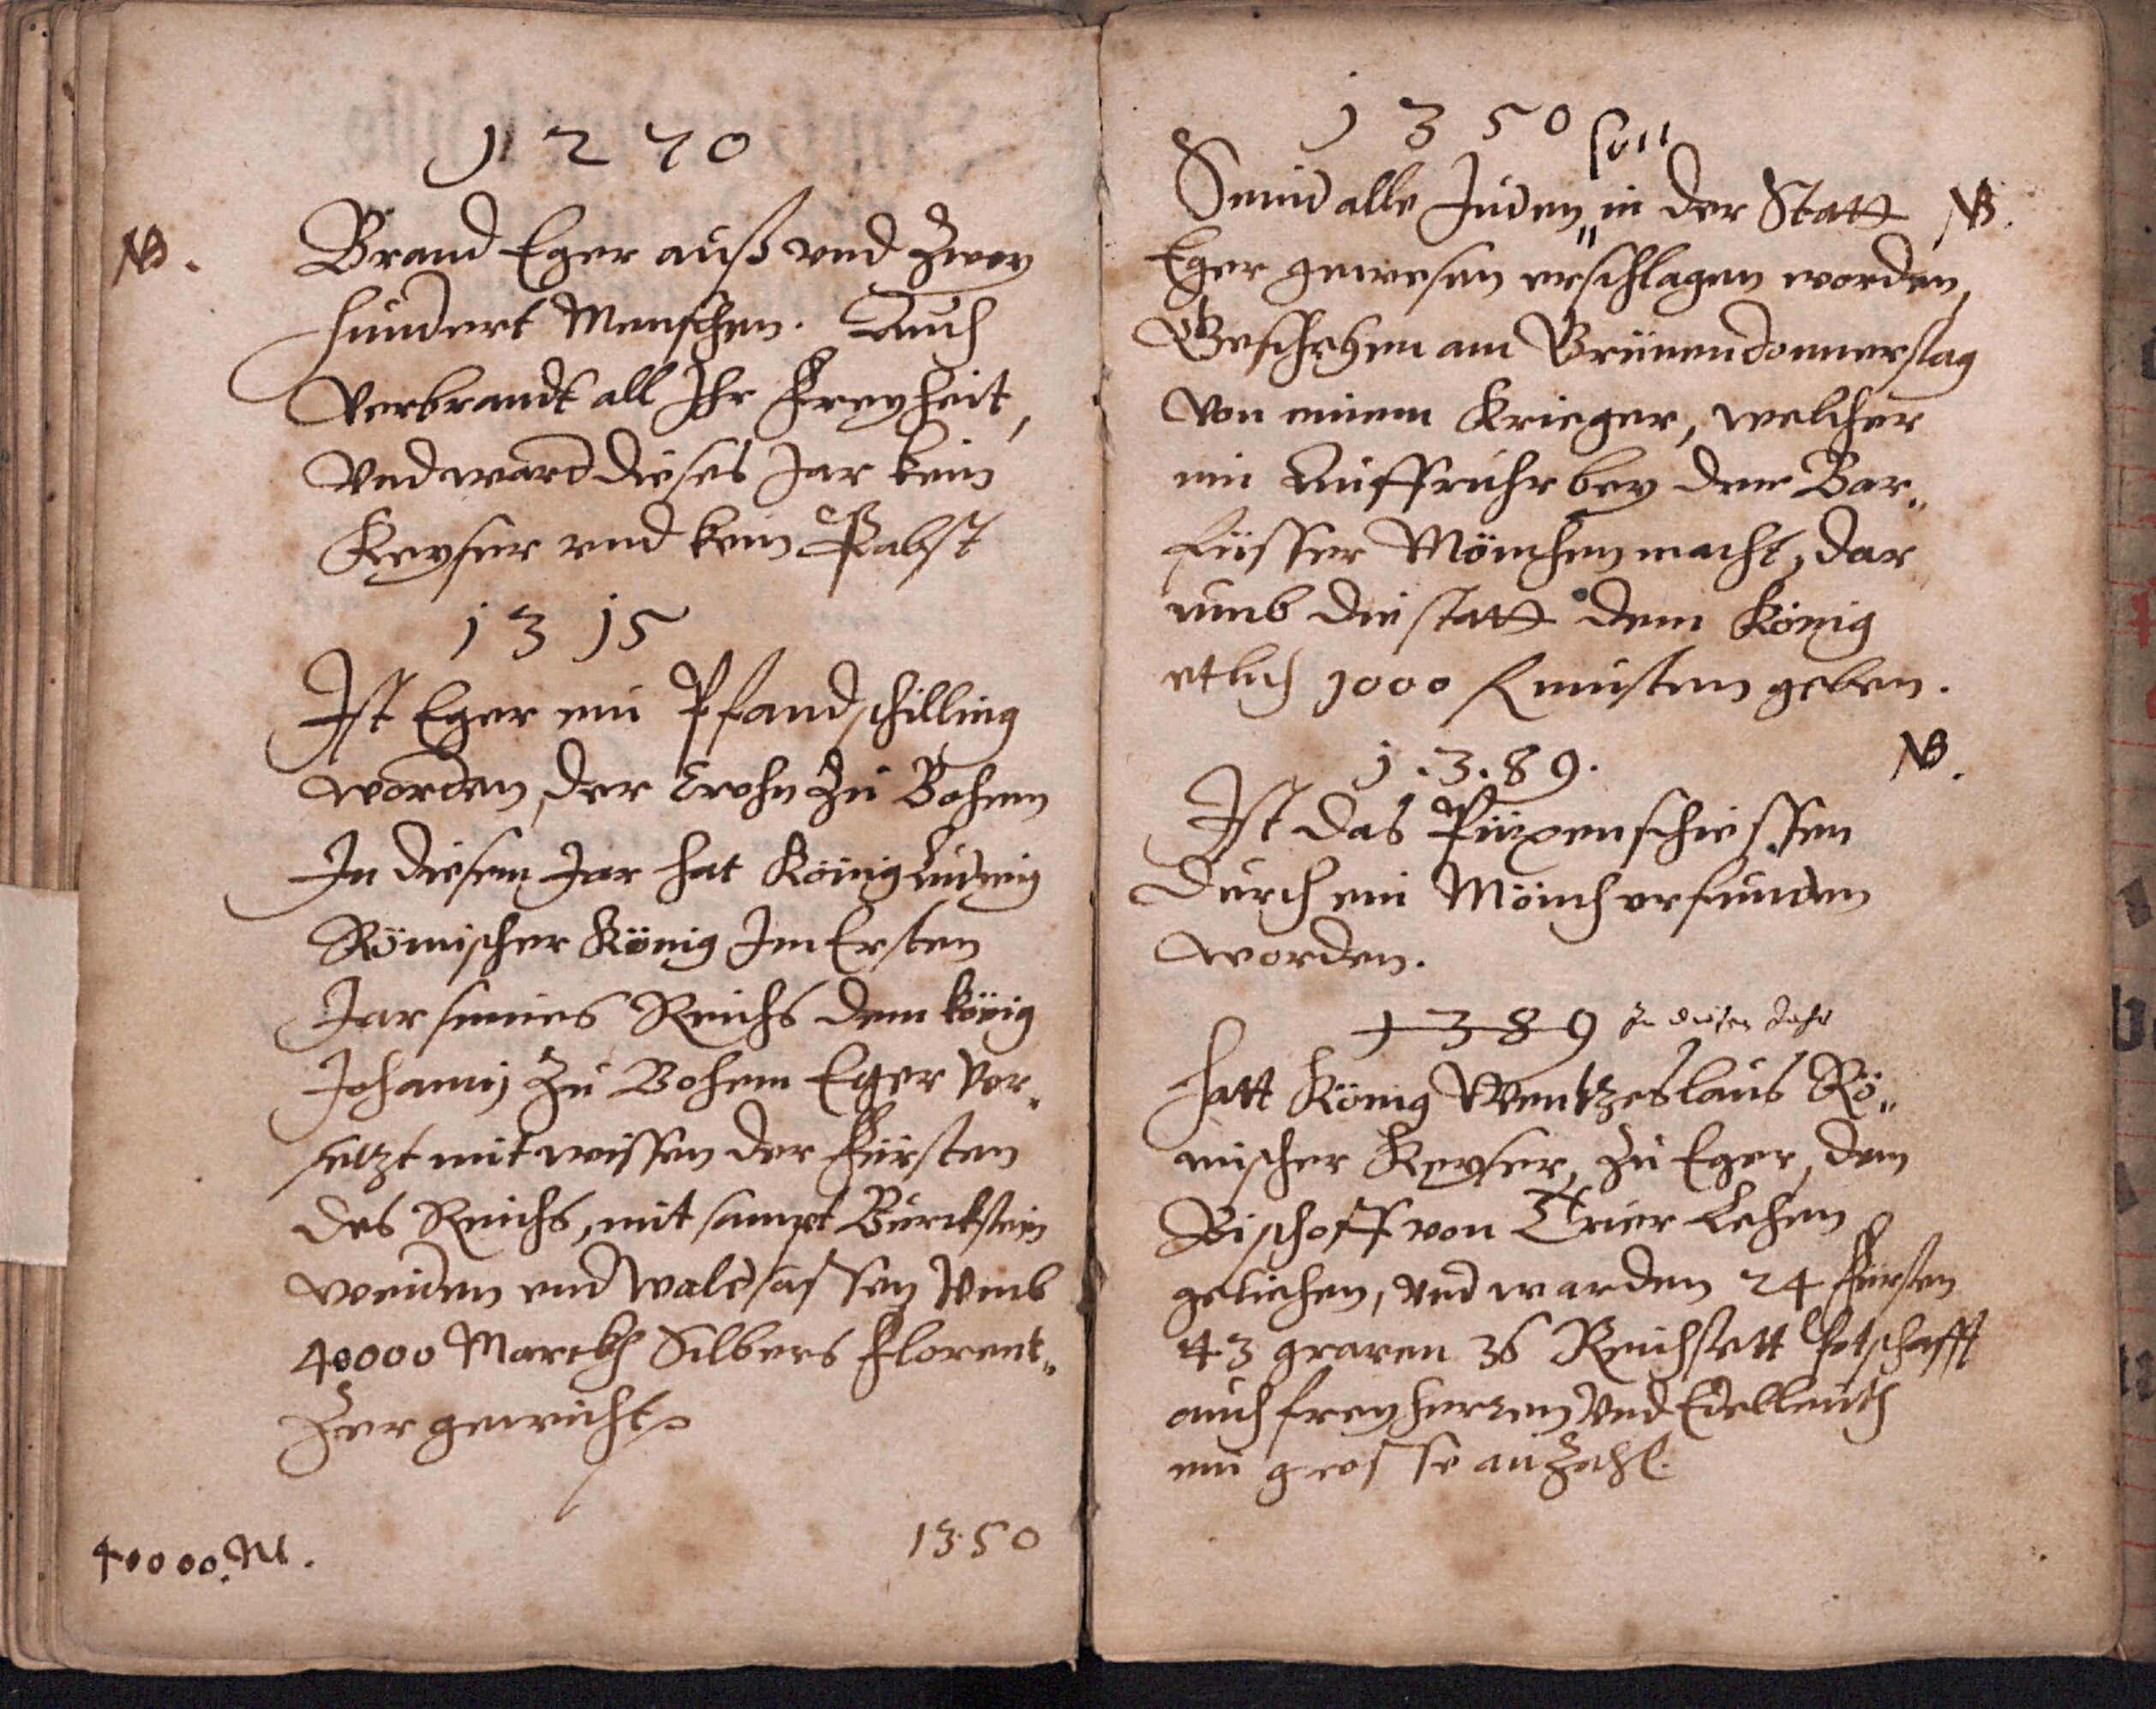 1270
NB.
Brand Eger auß vnd zwey
hundert Menschen. Auch
verbrandt all Ihr Freyheit,
Vnd ward dieses Jar kein
Keyser vnd kein Pabst
1315
Ist Eger ein Pfandschilling
worden, der Crohn zu Bohem
In diesem Jar hat König Ludwig
Römischer König Im Ersten
Jar seines Reichs dem könig
Johannj zu Bohem Eger ver„
setzt mit wissen der Fürsten
des Reichs, mit sampt Burckstein
weiden vnd Waldsassen Vmb
40000 Marckh Silbers Florent„
zer gewicht
40000. M.
1350
1350
Seind alle Juden in der Statt
NB.
Eger gewesen erschlagen worden,
Geschehen am Grünendonnerstag
von einem Krieger, welcher
ein Auffruhr bey den Bar„
füsser Mönchen macht, dar
umb die statt dem König
etlich 1000 musten geben.
1.3.89.
NB.
Ist das Püxenschiessen
durch ein Mönch erfunden
worden.
1389 In diesen Jahr
hatt König Wentzeslaus Rö„
mischer Keyser, zu Eger, dem
Bischoff von Trier Lehen
geliehen, vnd warden 24 Fürsten
43 graven 36 Reichstett botschafft
auch freyherren Vnd Edelleuth
ein grosse anzahl.